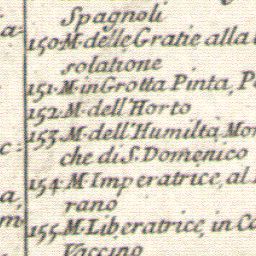 Spagnoli
150·M·delle Gratie alla
solatione
151·M·in Grotta Pinta, P
152·M·dell'Horto
153·M·dell'Humiltà Mon
che di S. Domenico
154·M·Imperatrice, al
rano
155·M·Liberatrice, in Ca
Vaccino